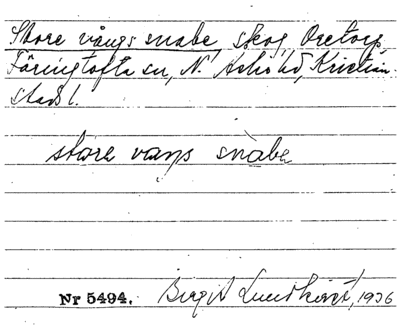 Store vångs snabe, skog, Oretorp,
Färingtofta sn, N. Åsbo hd, Kristian-
stads l.
store vaŋs snabe
Nr 5494. Birgit Lundkvist, 1936